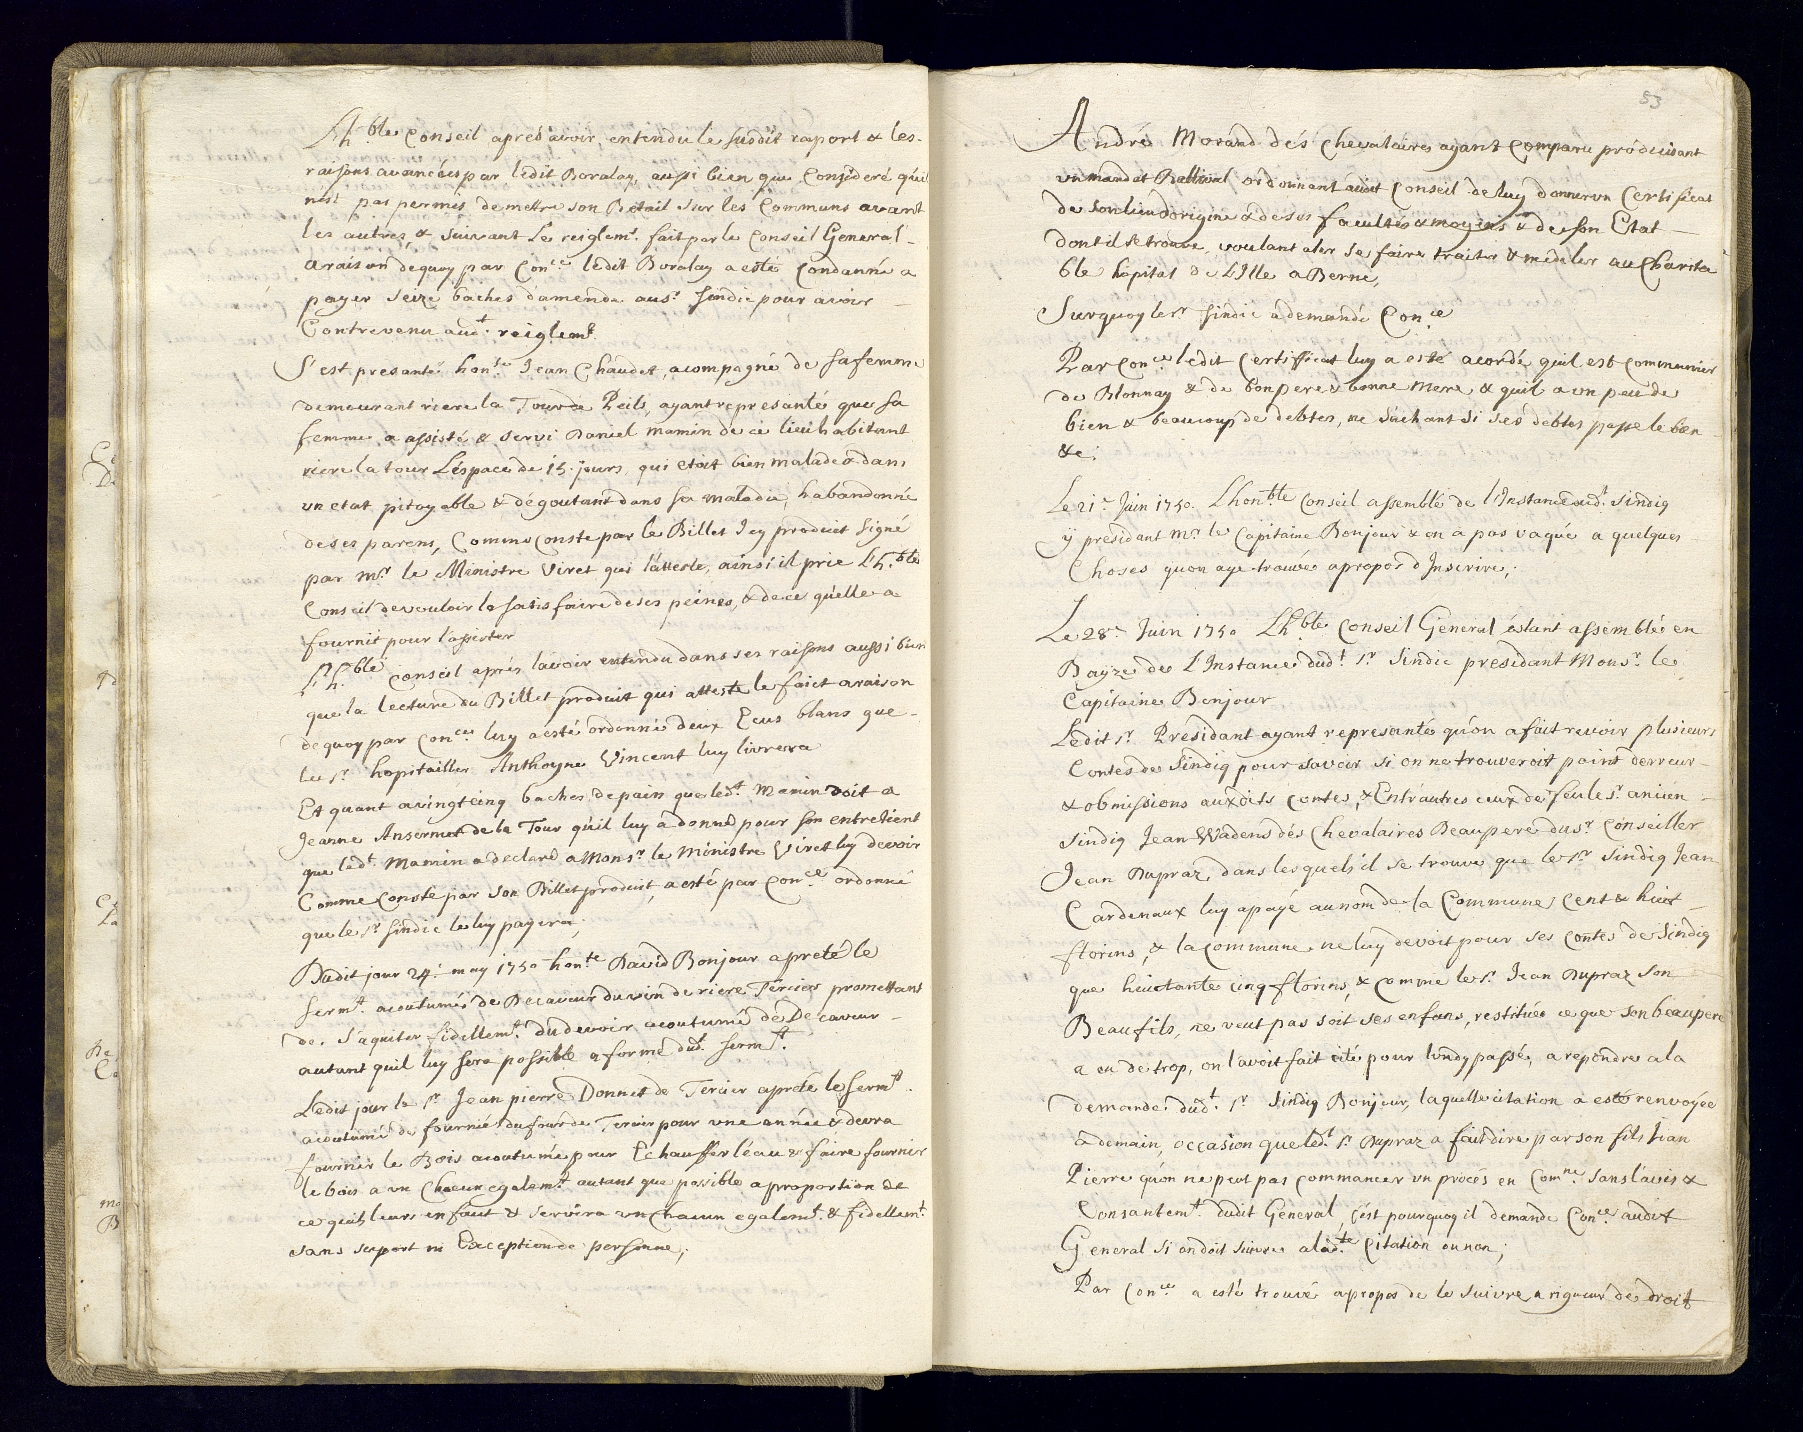 Lh.ble Conseil apres avoir entendu le susdit raport & les
raisons avancées par ledit Boralay, aussi bien que Consideré quil
n'est pas permis de mettre son Betail sur les Communs avant
les autres, & suivant le reiglemt. fait par le Conseil General
araison dequoy par Con.ce ledit Boralay a esté Condanné a
payer seize baches damende aus.r sindic pour avoir
Contrevenu aud.t reiglemt.
S'est presanté hon.te Jean Chaudet, acompagné de sa femme
demeurant riere la Tour de Peils, ayant representé que sa
femme a assisté & servi Daniel mamin de ce lieu habitant
riere la tour L'espace de 15. jours, qui etoit bien malade & dans
un etat pitoyable & dégoutant dans sa maladie, habandonné
de ses parens, Comme conste par le Billet Icy produit signé
par mr. le Ministre Viret qui l'atteste, ainsi il prie Lh.ble
Conseil devouloir la satisfaire de ses peines, & de ce quelle a
fournit pour l'assister
Lh.ble Conseil aprés lavoir entendu dans ses raisons aussi bien
que la lecture du Billet produit qui atteste le faict araison
dequoy par Con.ce luy a esté ordonné deux Ecus blans que
le sr. hopitallier Anthoyne Vincent luy livrera
Et quant avingt cinq baches de pain que led.t Mamin doit a
Jeanne Ansermet de la Tour qu'il luy a donné pour son entretient
que led.t Mamin a declaré a Monsr. le Ministre Viret luy devoir
Comme Conste par son Billet produit, a esté par Con.ce ordonné
que le sr. sindic le luy payera;
Dudit jour 24.e may 1750 hon.te David Bonjour apreté le
serm.t acoutumés de Decaveur du vin de riere Tercier promettant
de s'aquiter fidellem.t du devoir acoutumé de Decaveur
autant quil luy sera possible a forme dud.t serm.t.
Ledit jour le sr. Jean pierre Donnet de Tercier apreté le serm.t
acoutumé de fournié du four de Tercier pour une année & devra
fournir le Bois acoutumé pour Echauffer léau & faire fournir
le bois a un Chacun egalem.t autant que possible a proportion de
ce quil leurs en faut & servira un chacun egalem.t & fidellem.t
sans suport ni Exception de personne;
53
André Morand dés Chevalaires ayant Comparu prodeuisant
un mandat Ballival ordonnant audit Conseil de luy donner un Certificat
de son lieu dorigine & de ses facultés & moyens & de son Etat
dont il se trouve, voulant aler se faire traiter & médeler au Charita
ble hopital de L'Ille a Berne,
Surquoy le sr. sindic a demandé Con.ce
Par Con.ce ledit Certifficat luy a esté acordé quil est communier
de Blonnay & de bon pere & bonne mere, & quil a un peu de
bien & beaucoup de debtes, ne sachant si ses debtes passe le bien
&c;
Le 21.e Juin 1750. Lhon.ble Conseil assemblé de l'Instance dud.t sindiq
ÿ presidant mr. le Capitaine Bonjour & on a pas vaqué a quelques
Choses quon aye trouvé apropos d'Inscrire;
Le 28.e Juin 1750 Lh.ble Conseil General éstant assemblé en
Bayze de L'Instance dud.t sr. sindic presidant Monsr. le
Capitaine Bonjour
Ledit sr. Présidant ayant representé qu'on a fait revoir plusieurs
Contes de sindiq pour savoir si on ne trouveroit point derreur
& obmissions auxdits contes, & Entrautres ceux de feu le sr. ancien
sindiq Jean Wadens dés Chevalaires Beaupere du sr. Conseiller
Jean Dupraz, dans lesquels il se trouve que le sr. Sindiq Jean
Cardenaux luy apayé au nom de la Commune, Cent & huict
florins, & la Commune ne luy devoit pour ses Contes de sindiq
que huictante cinq florins, & comme le sr. Jean Dupraz son
Beaufils, ne veut pas soit ses enfans, restituer ce que son beaupere
a eu de trop, on l'avoit fait cité pour lundy passé, a repondre a la
demande dud.t sr. sindiq Bonjour, laquelle citation a esté renvoyée
a demain, occasion que led.t sr. Dupraz a fait dire par son fils Jean
Pierre qu'on ne peut pas commancer un procés en Com.ne sans l'avis &
Consantem.t dudit General, c'est pourquoy il demande Con.ce audit
General si on doit suivre a lad.te Citation ou non;
Par Con.ce a esté trouvé apropos de le suivre a rigueur de droit